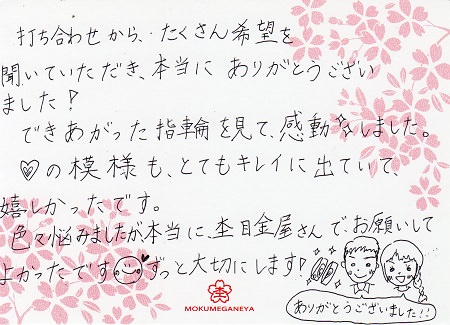 打ち合わせから、たくさん希望を
聞いていただき、本当に ありがとうござい
ました!
できあがった指輪を見て、感動しました。
♡の模様も、とてもキレイに出ていて、
嬉しかったです。
色々悩みましたが本当に、杢目金屋さんで、お願いして
よかったです ずっと大切にします!
ありがとうございました!!
MOKUMEGANEYA